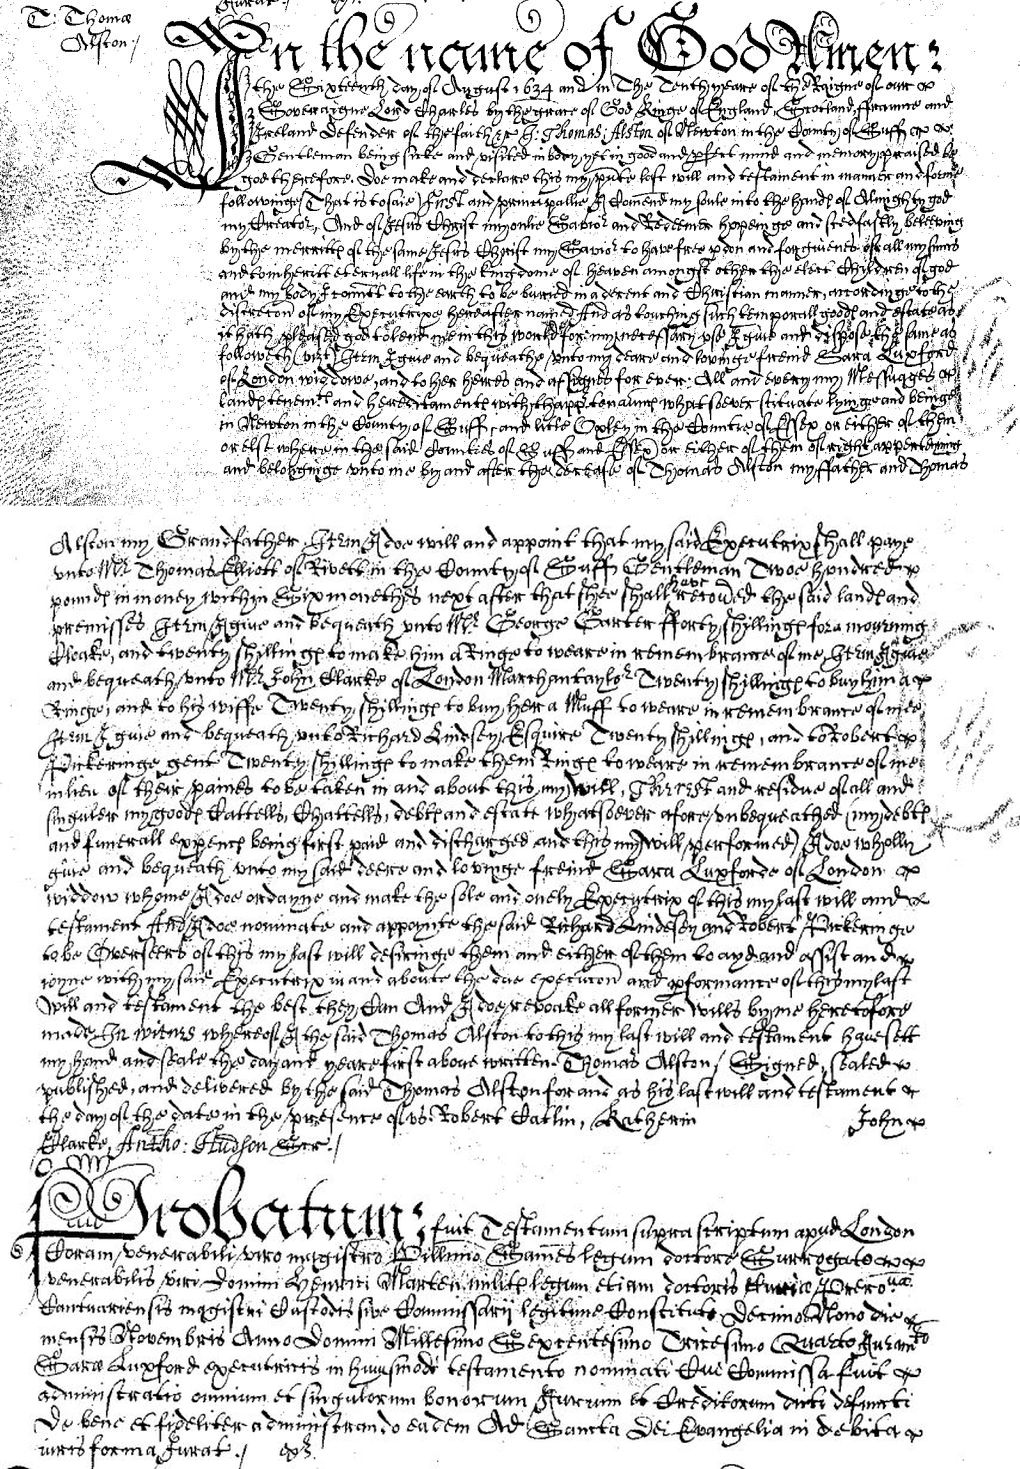 T: Thomæ
Alston /
In the name of God Amen:
the Sixteenth day of August 1634 and in The Tenth yeare of the Raigne of our
Soveraigne Lord Charles by the grace of God Kinge of England, Scotland, ffraunce and
Ireland Defender of the faith &c I: Thomas: Alston of Newton in the County of Suff
Gentleman being sicke and visited in body yet in good and pfect mind and memory praised be
god therefore. Doe make and declare this my last will and testament in manner and forme
followinge That is to saie First and principallie I Comend my soule into the hands of Almighty god
my Creator, And of Jesus Christ my onlie Savior and Redeemer hopeinge and stedfastly beleeving
by the merritts of the same Jesus Christ my Savior to have free pdon and forgivenes of all my sinns
and to inheritt eternall life in the kingdome of heaven amongst other the elect Children of god
and my body I comitt to the earth to be buried in a decent and Christian manner, accordinge to the
discrecon of my Executrixe hereafter named And as touching such temporall goods and estate as
it hath pleased god to lend me in this world for my necessary use I give and dispose the same as
followeth (vizt) Item I give and bequeathe unto my deare and lovinge freind Sara Luxford
of London widdowe, and to her heires and assignes for ever: All and every my Messuages
lands tenemts and hereditaments with thapptenaunces whatsoever scituate lyinge and beinge
in Newton in the County of Suff and litle Oxley in the Countie of Essex or either of them
or else where in the said Counties of Suff and Essex or either of them of right apperteining
and belonginge unto me by and after the decease of Thomas Alston my ffather and Thomas
Alston my Grandfather. Item I doe will and appoint that my said Executrix shall paye
unto Mr Thomas Elliott of Rivett in the County of Suff Gentleman Twoe hundred
pounds in money within Six monethes next after that shee shall have recoved the said lands and
premisses Item I give and bequeath unto Mr George Carter fforty shillings for a mourning
Cloake, and twenty shillings to make him a Ringe to weare in remembrance of me, Item I give
and bequeath unto Mr John Clarke of London Marchantaylor Twenty shillings to buy him a
Ringe, and to his wiffe Twenty shillings to buy her a Muff to weare in remembrance of mee
Item I give and bequeath unto Richard Lindesey Esquire Twenty shillings, and to Robert
Pickeringe gent Twenty shillings to make them Rings to weare in remembrance of me
in lieu of their paines to be taken in and about this my will, The rest and residue of all and
singuler my goods Cattells, Chattells, debts and estate whatsoever afore unbequeathed (my debts
and funerall expences being first paid and discharged and this my will performed) I doe wholly
give and bequeath unto my said deere and lovinge freind Sara Luxforde of London
widdow whome I doe ordayne and make the sole and onely Executrix of this my last will and
testament And I doe nominate and appoynte the said Richard Lindesey and Robert Pickeringe
to be Overseers of this my last will desiringe them and either of them to ayd and assist and
ioyne with my said Executrix in and aboute the due execucon and pformance of this my last
will and testament the best they Can And I doe revoake all former wills by me heretofore
made In witnes whereof I the said Thomas Alston to this my last will and testament have sett
my hand and seale the day and yeare first above written. Thomas Alston / Signed, sealed
published, and delivered by the said Thomas Alston for and as his last will and testament
the day of the date in the presence of us. Robert Catlin, Katherin John
Clarke, Antho: Hudson Scr. /
Probatum: fuit Testamentum suprascriptum apud London
Coram venerabili viro magistro Willimo Sames legum doctore Surrogato
venerabilis viri Domini Henrici Marten militis legum etiam doctoris Curiæ Prerove
Cantuariensis magistri Custodis sive Commissarij legitime Constituti Decimo Nono die
mensis Novembris Anno Domini Millesimo Sexcentesimo Tricesimo Quarto Juramto
Saræ Luxford executricis in huiusmodi testamento nominati Cui Commissa fuit
administratio omnium et singulorum bonorum Jurium et Creditorum dicti defuncti
De bene et fideliter administrando eadem Ad Sancta Dei Evangelia in debita
iuris forma Jurat. / exr.